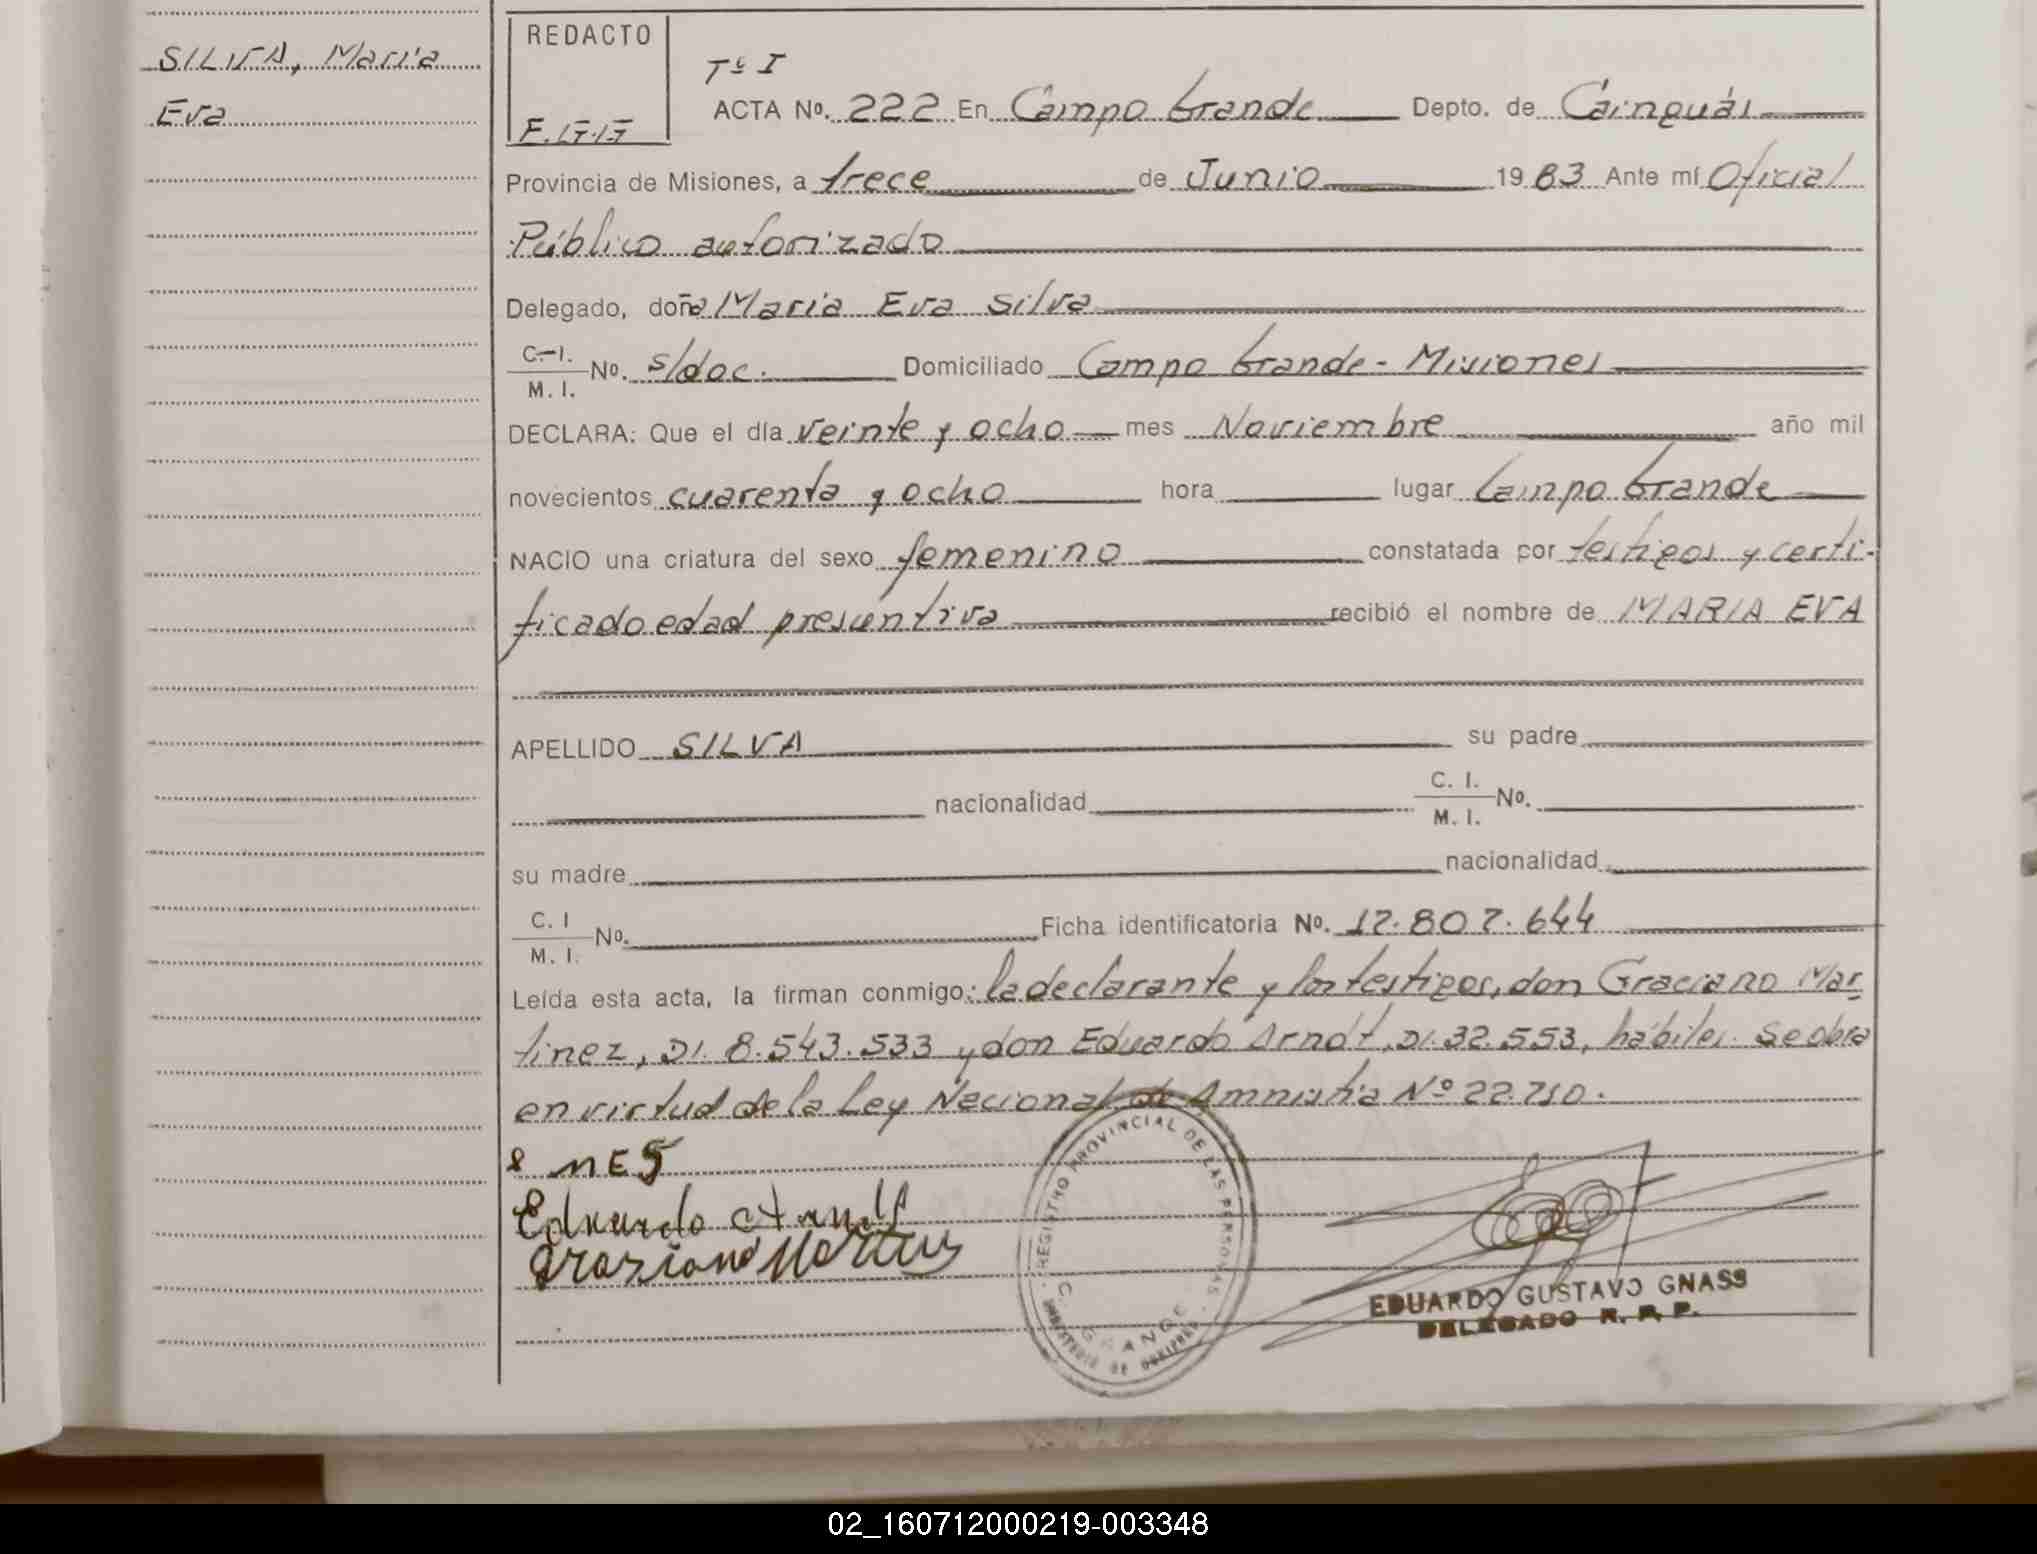 SILVA, Maria
Eva
REDACTO
Tº I
ACTA Nº. 222 En Campo Grande Depto. de Cainguás
Provincia de Misiones, a trece de Junio 1983 Ante mí Oficial
Público autorizado
Delegado, doña Maria Eva Silva
C. I.
M. I.
Nº. s/doc. Domiciliado Campo Grande - Misiones
DECLARA: Que el día veinte y ocho mes Noviembre año mil
novecientos cuarenta y ocho hora lugar Campo Grande
NACIO una criatura del sexo femenino constatada por testigos y certi-
ficado edad presuntiva recibió el nombre de MARIA EVA
APELLIDO SILVA su padre
nacionalidad C. I.
M. I. Nº.
su madre nacionalidad
C. I
M. I.
Nº. Ficha identificatoria Nº. 12.802.644
Leída esta acta, la firman conmigo: la declarante y los testigos, don Graciano Mar-
tinez, DI. 8.543.533 y don Eduardo Arndt, DI. 32.553, hábiles. Se obra
en virtud de la Ley Nacional de Amnistia Nº 22.710.
Eduardo Arndt
Graziano Martines
REGISTRO PROVINCIAL DE LAS PERSONAS
C. GRANDE
MINISTERIO DE GOBIERNO
EDUARDO GUSTAVO GNASS
DELEGADO R. P. P.
02_160712000219-003348